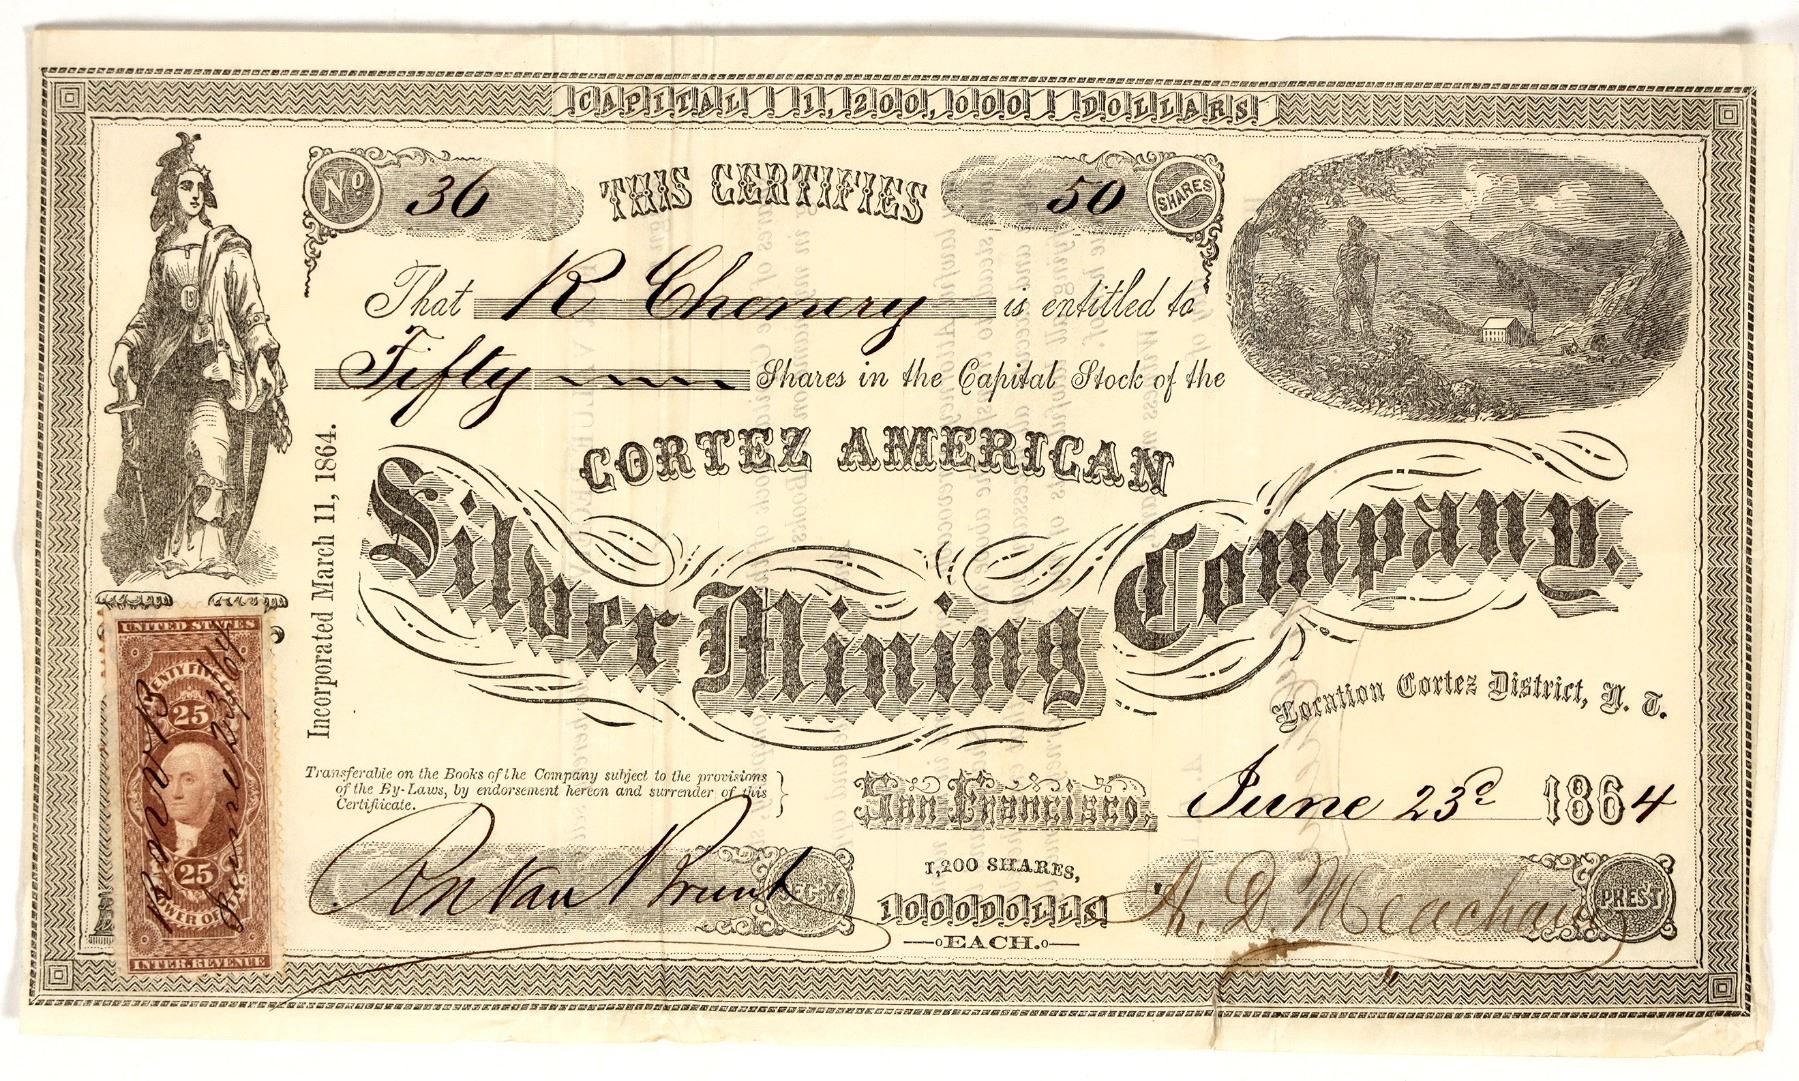 CAPITAL 1,200,000 DOLLARS
No 36 THIS CERTIFIES 50 SHARES
That R Chenery is entitled to
Fifty Shares in the Capital Stock of the
CORTEZ AMERICAN
Silver Mining Company.
Incorporated March 11, 1864.
Location Cortez District, N. T.
Transferable on the Books of the Company subject to the provisions
of the By-Laws, by endorsement hereon and surrender of this
Certificate.
San Francisco, June 23d 1864
1,200 SHARES,
1000 DOLLS
EACH.
SECY
A. D. Meacham PREST
UNITED STATES
TWENTY FIVE
25
June 23/64
25
POWER OF
INTER. REVENUE